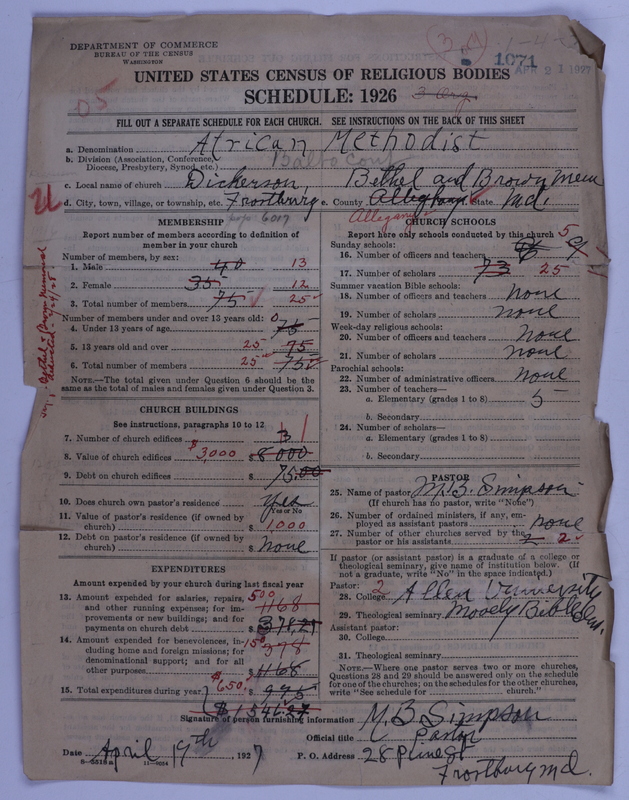 DEPARTMENT OF COMMERCE
BUREAU OF THE CENSUS
WASHINGTON
1071
APR 21 1927
UNITED STATES CENSUS OF RELIGIOUS BODIES
SCHEDULE: 1926
3 Org.
05
FILL OUT A SEPARATE SCHEDULE FOR EACH CHURCH. SEE INSTRUCTIONS ON THE BACK OF THIS SHEET
a. Denomination African Methodist
b. Division (Association, Conference, Diocese, Presbytery, Synod, etc.) Balto Conf
c. Local name of church Dickerson, Bethel and Brown Mem
d. City, town, village, or township, etc. Frostburg e. County Alleghany State Md.
Allegany
MEMBERSHIP
Report number of members according to definition of
member in your church
Number of members, by sex:
1. Male 40 13
2. Female 35 12
3. Total number of members 75 25
Number of members under and over 13 years old:
4. Under 13 years of age 0 75
5. 13 years old and over 25 75
6. Total number of members 25 75
NOTE.—The total given under Question 6 should be the
same as the total of males and females given under Question 3.
CHURCH BUILDINGS
See instructions, paragraphs 10 to 12
7. Number of church edifices 3 1
8. Value of church edifices $3,000 $8000
9. Debt on church edifices $75.00
10. Does church own pastor's residence? Yes
Yes or No
11. Value of pastor's residence (if owned by
church) $1000
12. Debt on pastor's residence (if owned by
church) $None
EXPENDITURES
Amount expended by your church during last fiscal year
13. Amount expended for salaries, repairs,
and other running expenses; for im-
provements or new buildings; and for
payments on church debt 500 1168 $378,27
14. Amount expended for benevolences, in-
cluding home and foreign missions; for
denominational support; and for all
other purposes 150 378 $1168
15. Total expenditures during year $650 $975
$1546.27
CHURCH SCHOOLS
Report here only schools conducted by this church
Sunday schools:
16. Number of officers and teachers 5
17. Number of scholars 73 25
Summer vacation Bible schools:
18. Number of officers and teachers None
19. Number of scholars None
Week-day religious schools:
20. Number of officers and teachers None
21. Number of scholars None
Parochial schools:
22. Number of administrative officers None
23. Number of teachers—
a. Elementary (grades 1 to 8) 5
b. Secondary
24. Number of scholars—
a. Elementary (grades 1 to 8)
b. Secondary
PASTOR
25. Name of pastor M. B. Simpson
(If church has no pastor, write "None")
26. Number of ordained ministers, if any, em-
ployed as assistant pastors none
27. Number of other churches served by the
pastor or his assistants 2 2
If pastor (or assistant pastor) is a graduate of a college or
theological seminary, give name of institution below. (If
not a graduate, write "No" in the space indicated.)
Pastor: 2
28. College Allen University
29. Theological seminary Moody Bible
Assistant pastor:
30. College
31. Theological seminary
NOTE.—Where one pastor serves two or more churches,
Questions 28 and 29 should be answered only on the schedule
for one of the churches; on the schedules for the other churches,
write "See schedule for church."
Signature of person furnishing information M. B. Simpson
Official title Pastor
Date April 19th, 1927 P. O. Address 28 Pine St
Frostburg Md.
8—5518a 11—9054